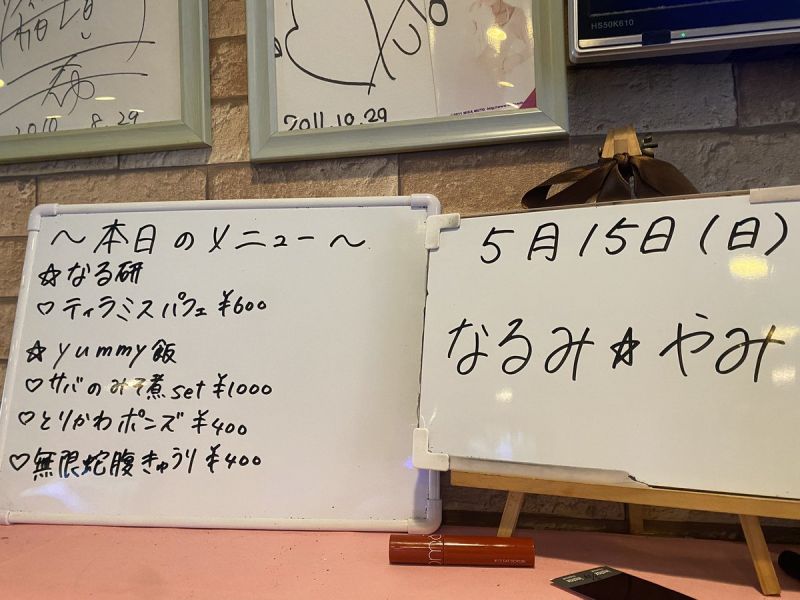 2010 8.29
2011.10.29
HS50K610
〜本日のメニュー〜
☆なる研
♡ティラミスパフェ ¥600
☆yummy飯
♡サバのみそ煮set ¥1000
♡とりかわポンズ ¥400
♡無限蛇腹きゅうり ¥400
5月15日(日)
なるみ☆やみ